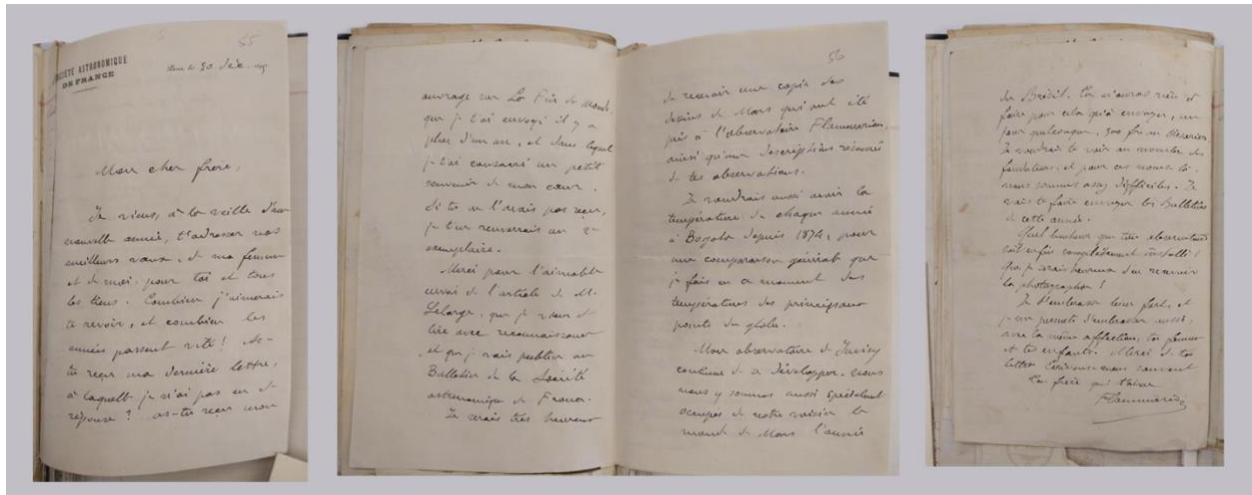 55
SOCIÉTÉ ASTRONOMIQUE
DE FRANCE
le 30 Déc.
Mon cher frère,
Je viens, à la veille d'une
nouvelle année, t'adresser nos
meilleurs vœux, de ma femme
et de moi, pour toi et tous
les tiens. Combien j'aimerais
te revoir, et combien les
années passent vite! As-
tu reçu ma dernière lettre,
à laquelle je n'ai pas eu de
réponse? as-tu reçu mon
ouvrage sur La Fin du Monde,
que je t'ai envoyé il y a
plus d'un an, et dans lequel
je t'ai consacré un petit
souvenir de mon cœur.
Si tu ne l'avais pas reçu,
je t'en renverrais un 2e
exemplaire.
Merci pour l'aimable
envoi de l'article de M.
Lelarge, que je viens de
lire avec reconnaissance
et que je vais publier au
Bulletin de la Société
astronomique de France.
Je serais très heureux
56
de recevoir une copie des
dessins de Mars qui ont été
pris à l'observatoire Flammarion,
ainsi qu'une description résumée
de tes observations.
Je voudrais aussi avoir la
température de chaque année
à Bogota depuis 1874, pour
une comparaison générale que
je fais en ce moment des
températures des principaux
points du globe.
Mon observatoire de Juvisy
continue de se développer. Nous
nous y sommes aussi spécialement
occupés de notre voisin le
monde de Mars. L'année
du Brésil. Tu n'auras rien à
faire pour cela qu'à envoyer, un
jour quelconque,
Je voudrais te voir au nombre des
fondateurs, et pour ces noms-là
nous sommes assez difficiles. Je
vais te faire envoyer les Bulletins
de cette année.
Quel bonheur que ton observatoire
soit enfin complètement installé!
Que je serais heureux d'en recevoir
la photographie!
Je t'embrasse bien fort, et
je me permets d'embrasser aussi,
avec la même affection, ta femme
et tes enfants. Merci de ta
lettre. Écrivons-nous souvent
Ton frère qui t'aime
Flammarion